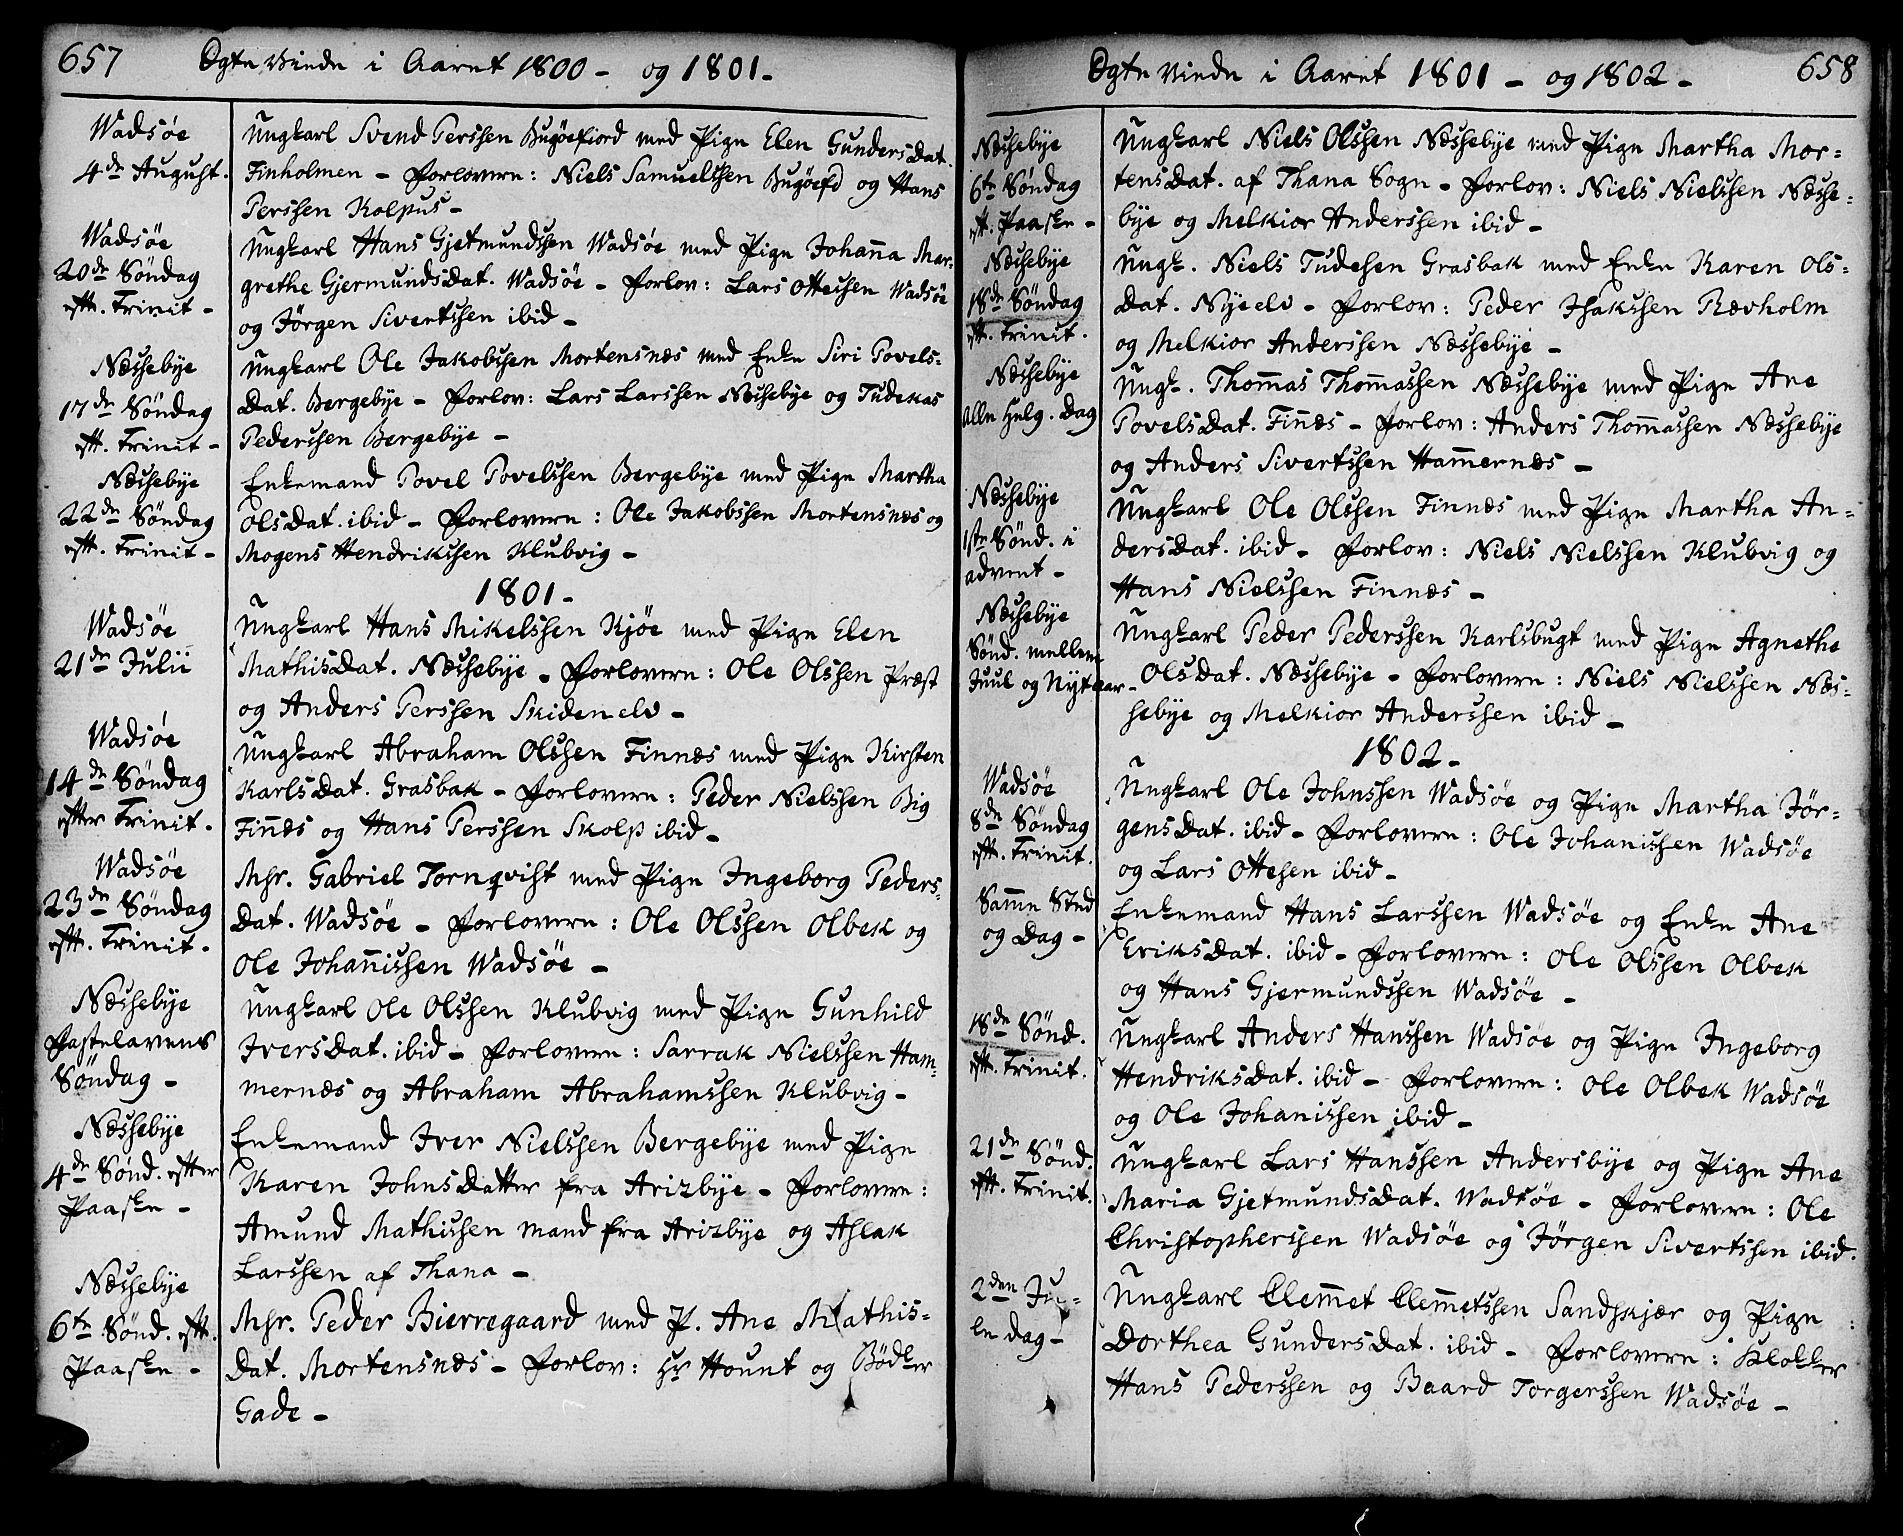 657
Ægte Viede i Aaret 1800 – og 1801 –
Wadsøe
4de August.
Ungkarl Svend Perssen Bugøefiord med Pige Elen Gunders Dat.
Finholmen – Forlovere: Niels Samuelssen Bugøefd og Hans
Perssen Kolpus –
Wadsøe
20de Søndag
eft. Trinit –
Ungkarl Hans Gjetmundssen Wadsøe med Pige Johanna Mar-
grethe Gjermunds Dat. Wadsøe – Forlov: Lars Ottesen Wadsøe
og Jörgen Sivertssen ibid –
Næssebye
17de Søndag
eft. Trinit –
Ungkarl Ole Jakobssen Mortensnæs med Enke Siri Povels-
Dat. Bergebye – Forlov: Lars Larssen Næssebye og Tudekas
Pederssen Bergebye –
Næssebye
22de Søndag
eft. Trinit –
Enkemand Povel Povelssen Bergebye med Pige Martha
Ols Dat. ibid – Forlovere: Ole Jakobssen Mortensnæs og
Mogens Hendrikssen Klubvig –
1801 –
Wadsøe
21de Julii
Ungkarl Hans Mikelssen Kjöe med Pige Elen
Mathis Dat. Næssebye – Forlovere: Ole Olssen Præst
og Anders Perssen Skidenelv –
Wadsøe
14de Søndag
efter Trinit.
Ungkarl Abraham Olssen Finnæs med Pige Kirsten
Karls Dat. Grasbak – Forlovere: Peder Nielssen Big
Finnæs og Hans Perssen Skolp ibid –
Wadsøe
23de Søndag
eft. Trinit.
Msr. Gabriel Tornqvist med Pige Ingeborg Peders-
Dat. Wadsøe – Forlovere: Ole Olssen Olbek og
Ole Johannissen Wadsöe –
Næssebye
Fastelavens
Søndag –
Ungkarl Ole Olssen Klubvig med Pige Gunhild
Ivers Dat. ibid – Forlovere: Sarrak Nielssen Ham-
mernæs og Abraham Abrahamssen Klubvig –
Næssebye
4de Sønd. efter
Paaske –
Enkemand Iver Nielssen Bergebye med Pige
Karen Johns Datter fra Arizbye – Forlovere:
Amund Mathissen mand fra Arizbye og Aslak
Larssen af Thana –
Næssebye
6te Sønd. eft.
Paaske –
Msr. Peder Bierregaard med P. Ane Mathis-
Dat. Mortensnæs – Forlov: Hr Hount og Bödker
Gade –
658
Ægte Viede i Aaret 1801 – og 1802 –
Næssebye
6te Søndag
eft. Paaske –
Ungkarl Niels Olssen Næssebye med Pige Martha Mor-
tens Dat. af Thana Sogn – Forlov: Niels Nielssen Næsse-
bye og Melkior Anderssen ibid –
Næssebye
18de Søndag
eft. Trinit.
Ungk. Niels Tudesen Grasbak med Enke Karen Ols-
Dat. Nyeelv – Forlov: Peder Isakssen Rævholm
og Melkior Anderssen Næssebye –
Næssebye
Alle Helg. Dag
Ungk. Thommas Thommassen Næssebye med Pige Ane
Povels Dat. Finnæs – Forlov: Anders Thommassen Næssebye
og Anders Sivertssen Hammernæs –
Næssebye
1ste Sønd. i
advent –
Ungkarl Ole Olssen Finnæs med Pige Martha An-
ders Dat. ibid – Forlov: Niels Nielssen Klubvig og
Hans Nielssen Finnæs –
Næssebye
Sønd. mellem
Juul og Nyt aar –
Ungkarl Peder Pederssen Karlsbugt med Pige Agnethe
Ols Dat. Næssebye – Forlovere: Niels Nielssen Næs-
sebye og Melkior Anderssen ibid –
1802 –
Wadsøe
8de Søndag
eft. Trinit.
Ungkarl Ole Johnssen Wadsøe og Pige Martha Jör-
gens Dat. ibid – Forlovere: Ole Johanissen Wadsöe
og Lars Ottesen ibid –
Samme Sted
og Dag –
Enkemand Hans Larssen Wadsøe og Enke Ane
Eriks Dat. ibid – Forlovere: Ole Olssen Olbek
og Hans Gjermundssen Wadsøe –
18de Sönd.
eft. Trinit.
Ungkarl Anders Hanssen Wadsøe og Pige Ingeborg
Hendriks Dat. ibid – Forlovere: Ole Olbek Wadsöe
og Ole Johanissen ibid –
21de Sønd.
eft. Trinit.
Ungkarl Lars Hanssen Andersbye og Pige Ane
Maria Gjetmunds Dat. Wadsøe – Forlovere: Ole
Christopherssen Wadsøe og Jörgen Sivertssen ibid.
2den Ju-
le dag –
Ungkarl Clemmet Clemmetssen Sandskjær og Pige
Dorthea Gunders Dat. ibid – Forlovere: Klokker
Hans Pederssen og Baard Torgerssen Wadsøe –